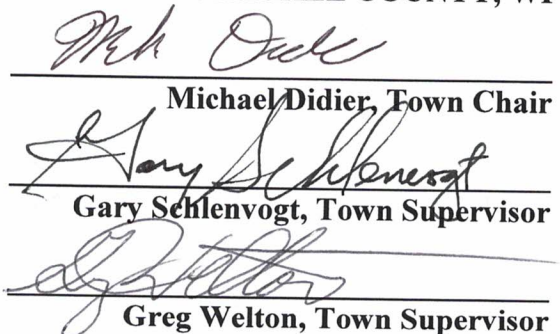 COUNTY, WI
Michael Didier, Town Chair
Gary Schlenvogt
Gary Schlenvogt, Town Supervisor
Greg Welton, Town Supervisor